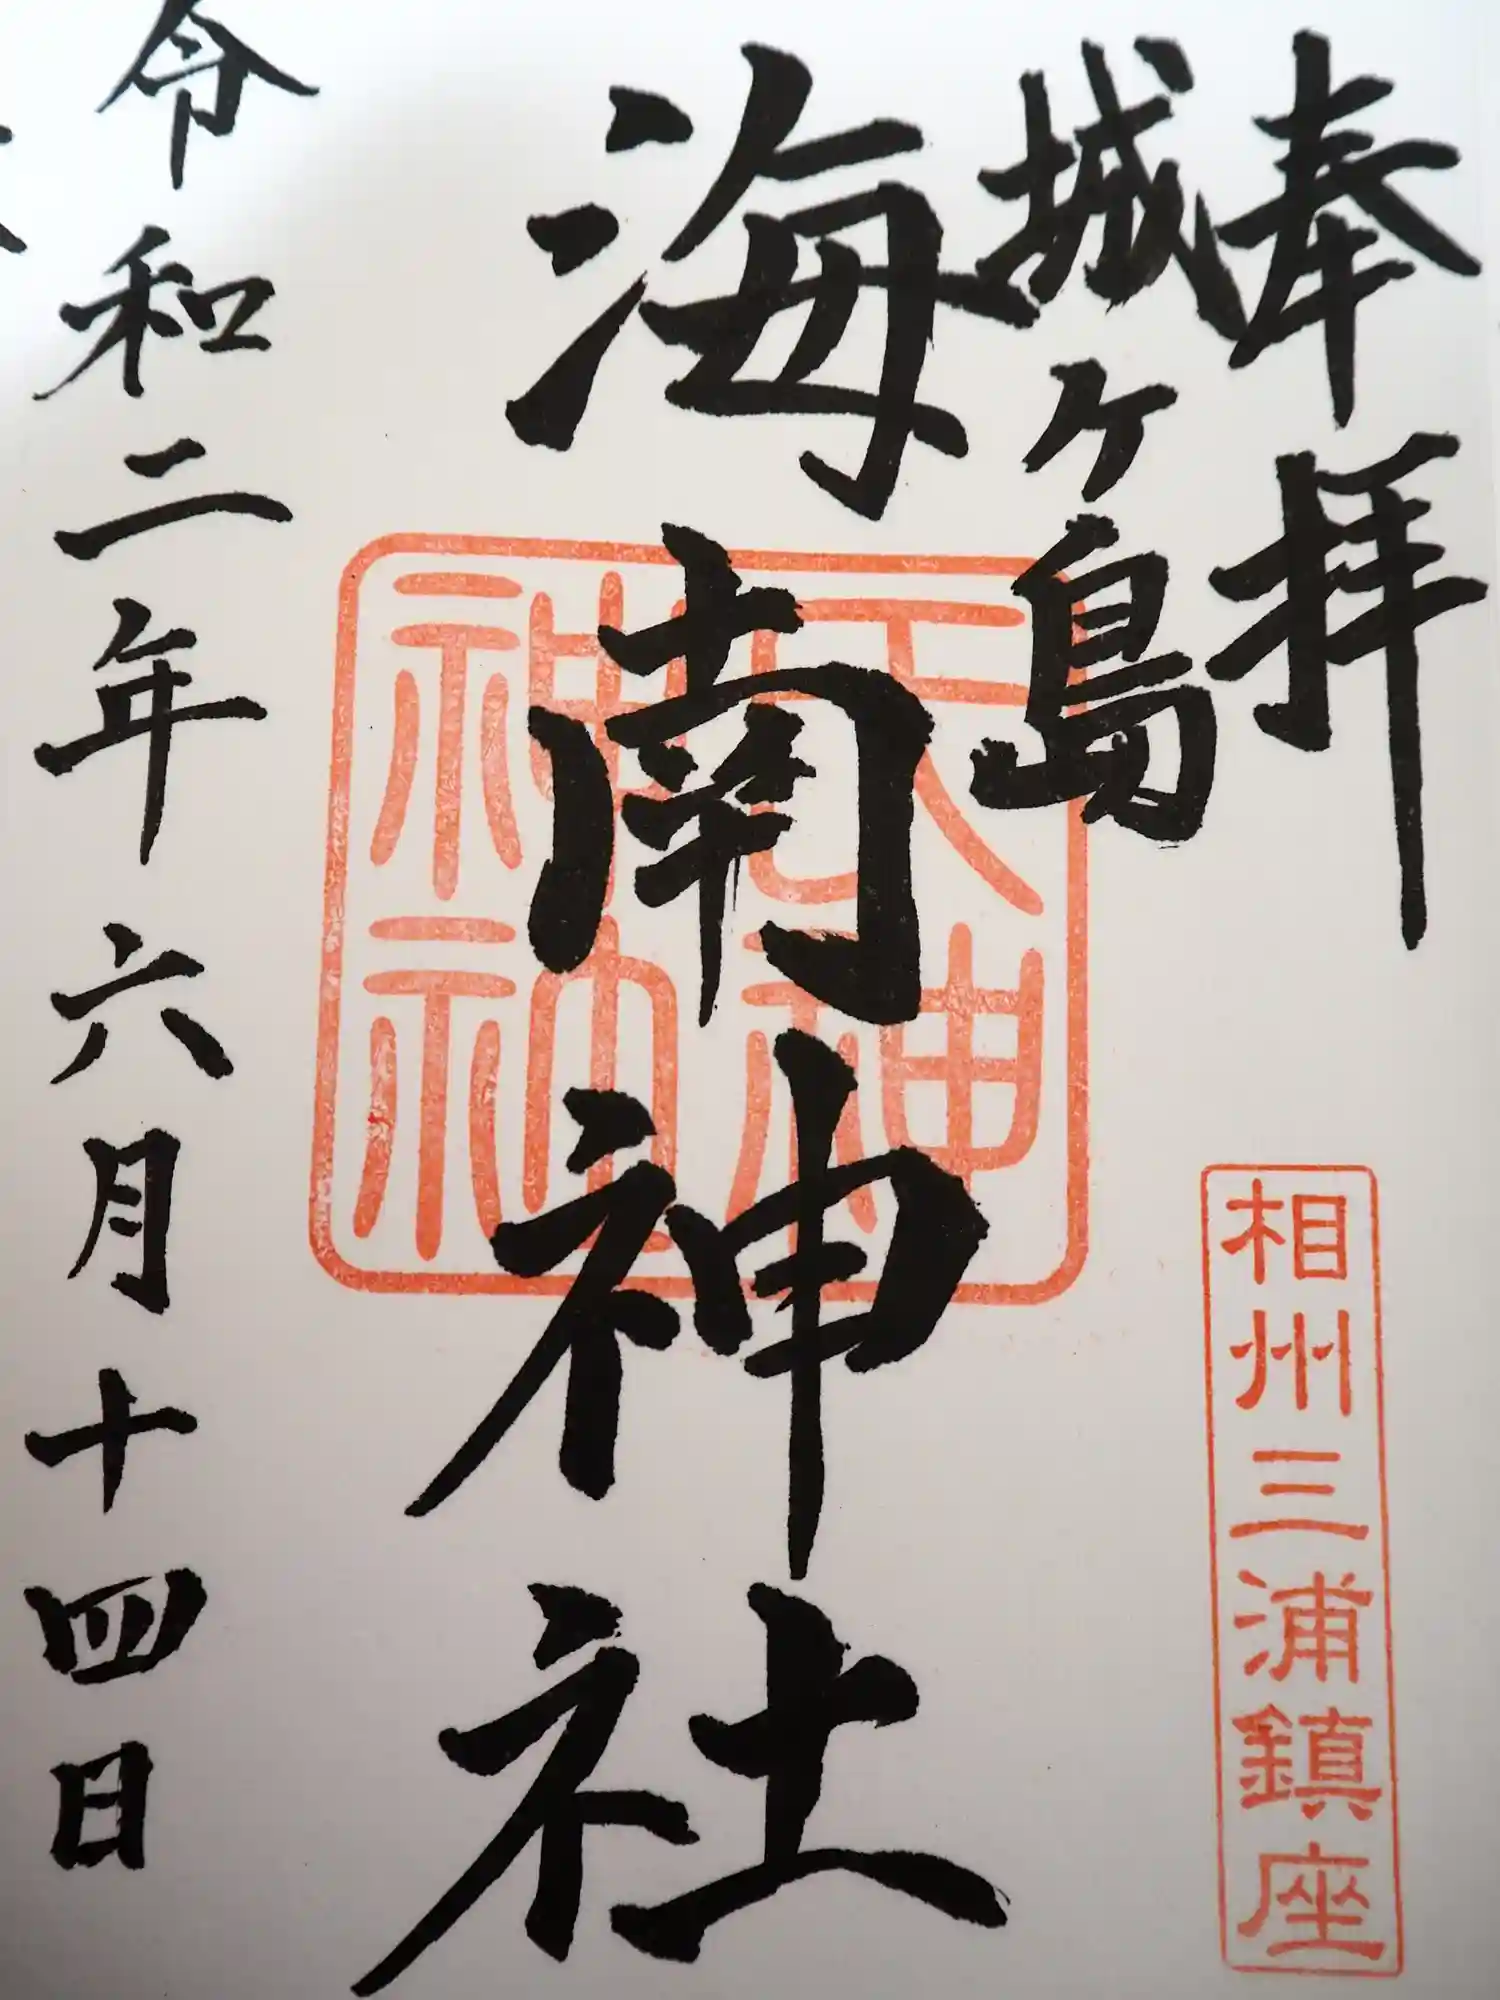 奉拝
相州三浦鎮座
城ヶ島
海南神社
令和二年六月十四日